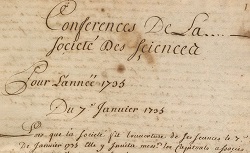 Conferences De La
Societé Des Sciences
Pour l'année 1735
Du 7e Janvier 1735
que la Societé fit l'ouverture de ses seances le 7e
de Janvier 1735 Elle y invita